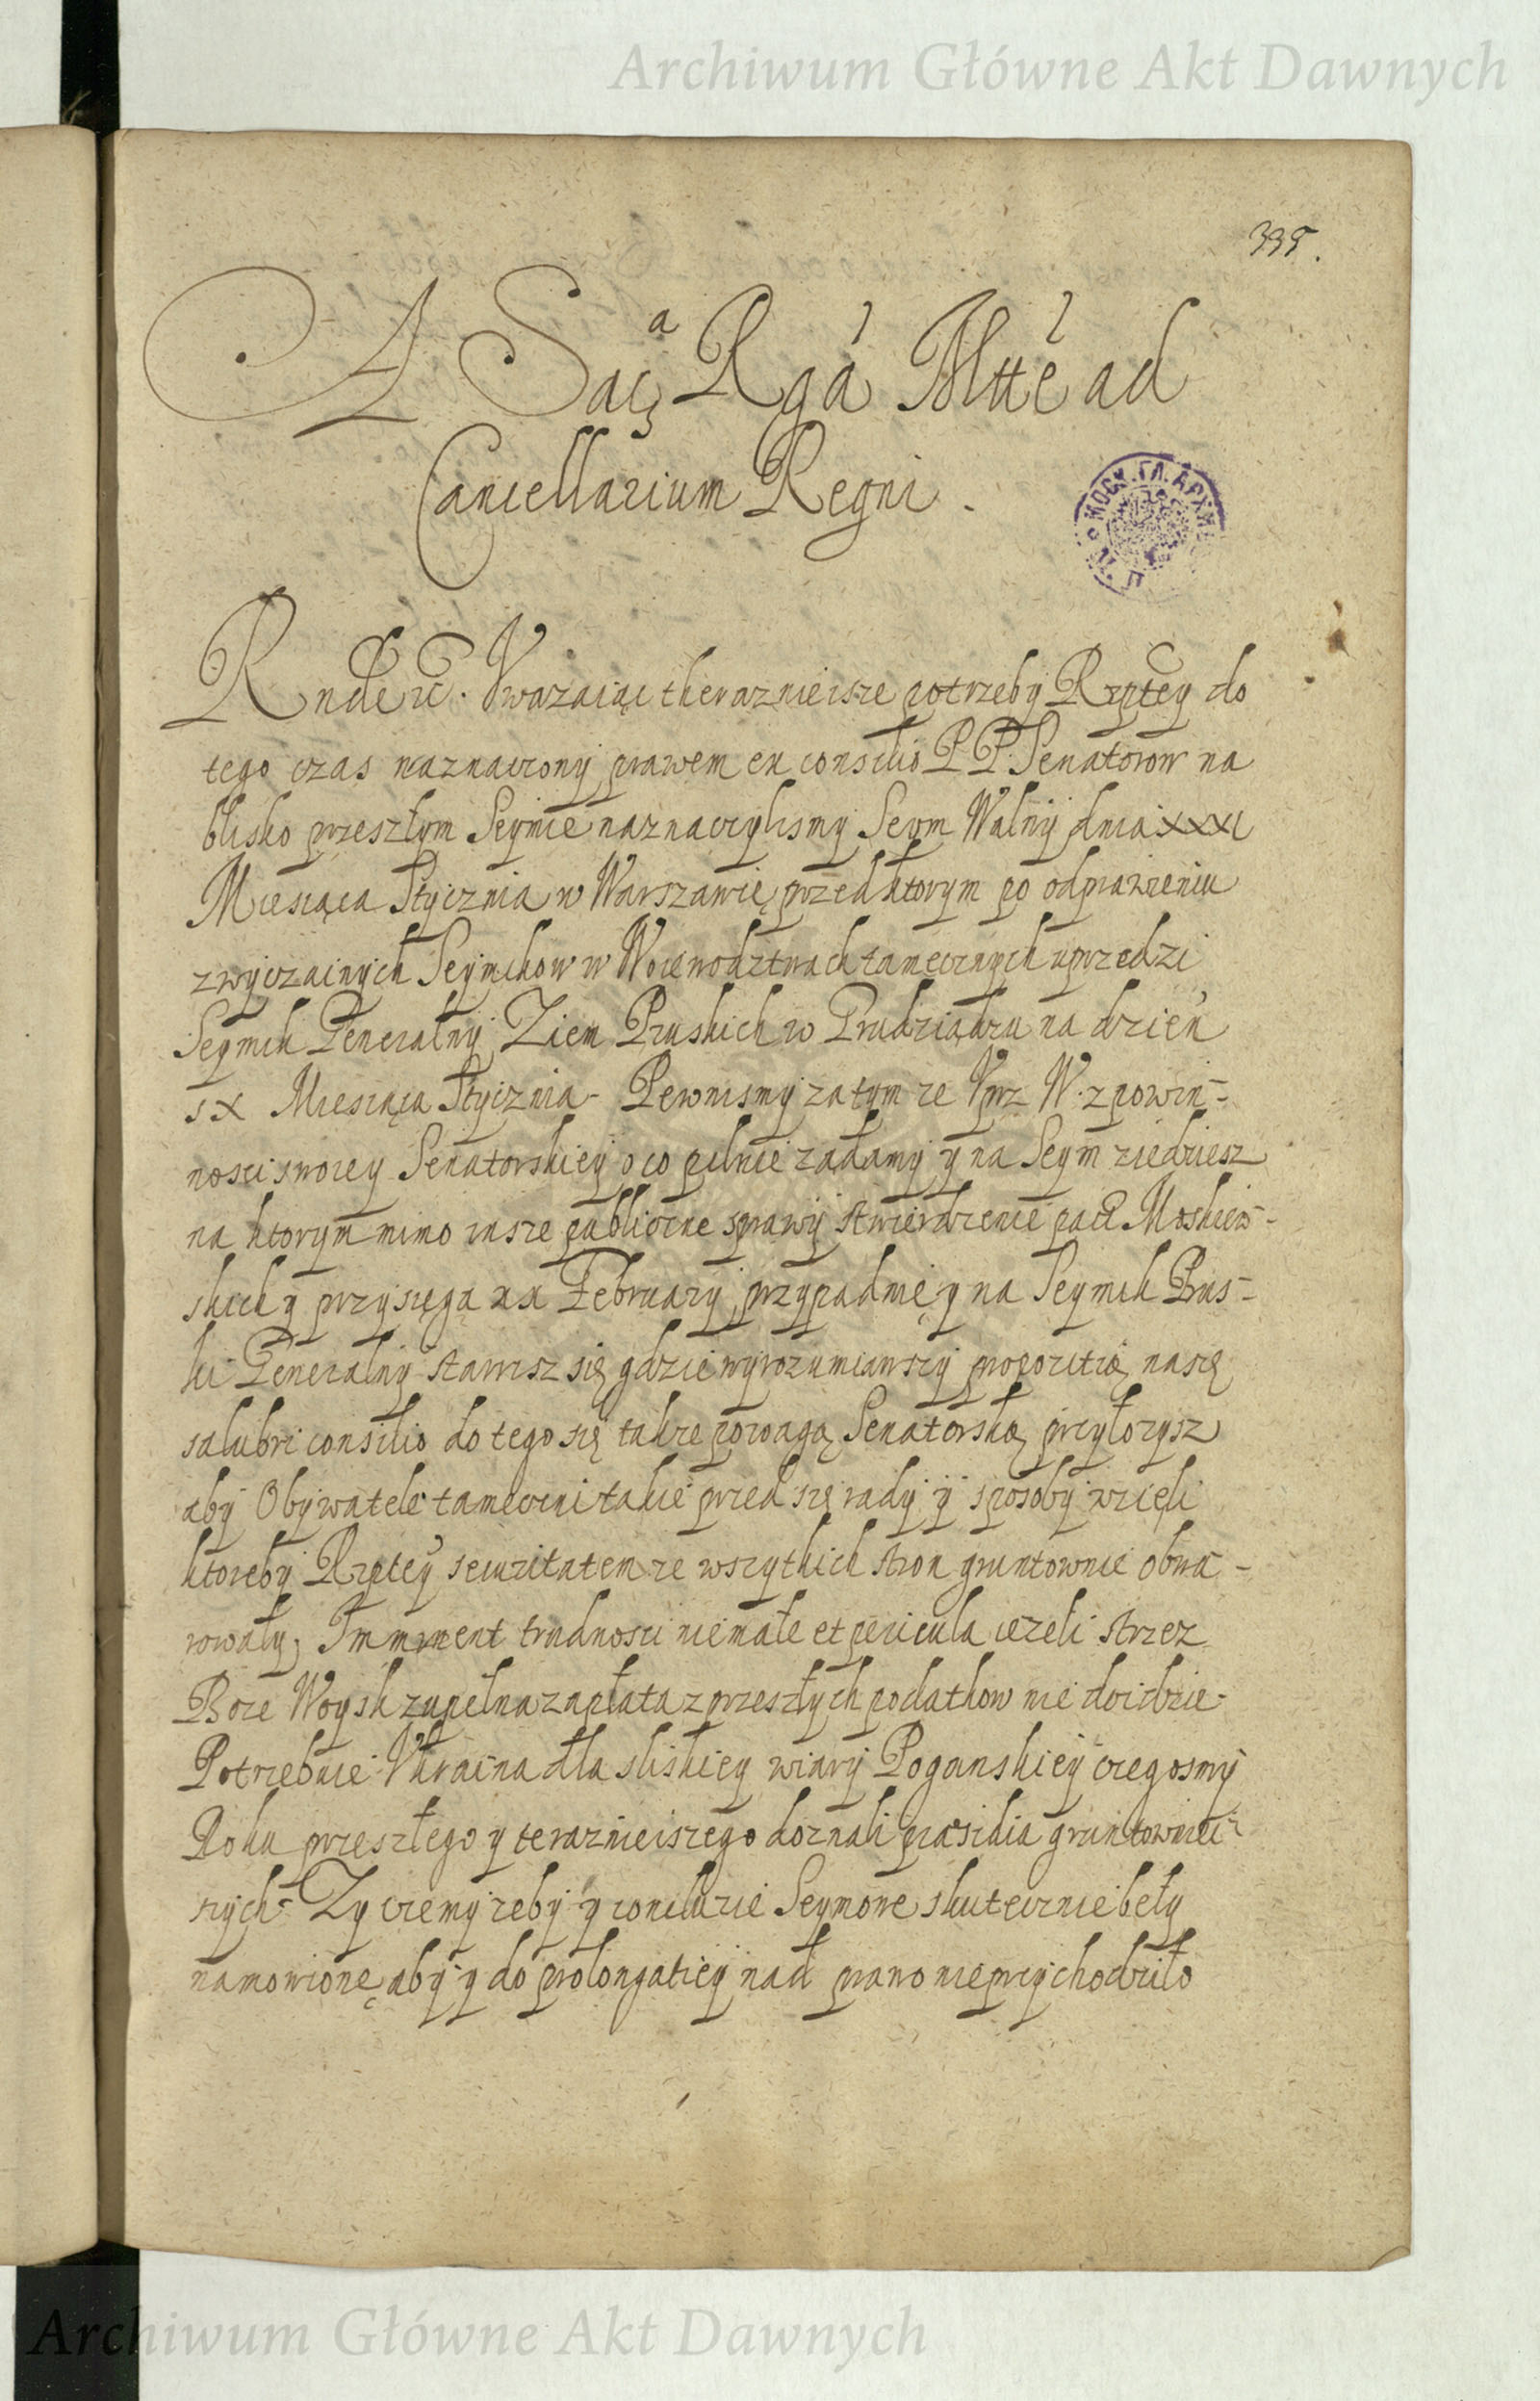 Archiwum Główne Akt Dawnych
335.
A Sacª Rgá Mttē ad
Cancellarium Regni.
Rnde etc. Vwazaiąc theraznieisze potrzeby Rzptey do
tego czas naznaczony prawem ex consilio PP. Senatorow na
blisko przeszłym Seymie naznaczylismy Seym Walny dnia xxxi
Miesiąca Stycznia w Warszawie, przed ktorym po odprawieniu
zwyczainych Seymikow w Woiewodztwach tamecznych uprzedzi
Seymik Generalny Ziem Pruskich w Grudziądzu na dzień
ix Miesiąca Stycznia. Pewnismy zatym ze Vprz W. z powin-
nosci swoiey Senatorskiey o co pilnie ządamy y na Seym ziedziesz
na ktorym mimo insze publiczne sprawy stwierdzenie pact Moskiew-
skich y przysięga Februarÿ przypadnie, y na Seymik Prus-
ki Generalny stawisz się gdzie wyrozumiawszy propozitią naszę
salubri consilio do tego się takze powagą Senatorską przyłozysz
aby Obywatele tameczni takie przed się rady y sposoby wzięli
ktoreby Rzptey securitatem ze wszytkich stron gruntownie obwa-
rowały, Imminent trudnosci niemałe et pericula iezeli strzez
Boze Woysk zupełna zapłata z przeszłych podatkow nie doidzie.
Potrzebuie Vkraina dla sliskiey wiary Poganskiey czegosmy
Roku przeszłego y terazнieiszego doznali præsidia gruntowniei-
szych. Zyczemy zeby y conclusie Seymowe skutecznie beły
namowione, aby y do prolongatiey nad prawo nieprzychodziło
Archiwum Główne Akt Dawnych